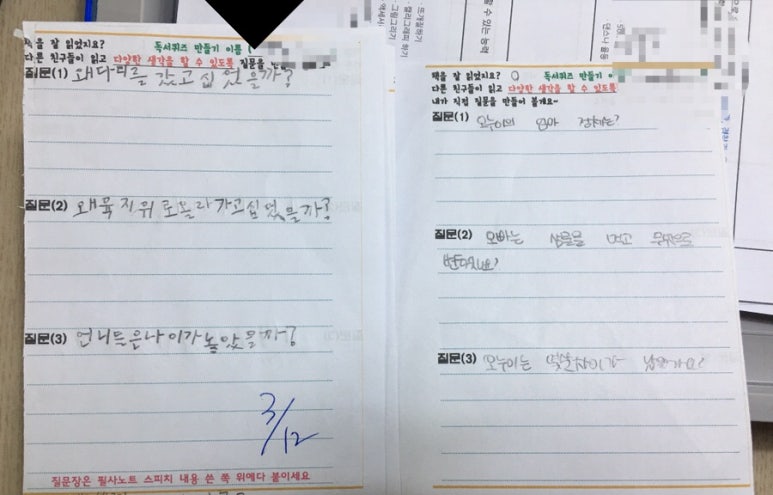 책을 잘 읽었지요?
독서퀴즈 만들기 이름 (
다른 친구들이 읽고 다양한 생각을 할 수 있도록 질문을
질문(1) 왜다리를 갔고 십었을까?
질문(2) 왜육지위로올라가고십었을까?
질문(3) 언니들은나이가높았을까?
3/12
질문장은 필사노트 스피치 내용 쓴 쪽 위에다 붙이세요
뜨개질하기
캘리그래피 하기
그림그리기
액세서
할 수 있는 능력
댄스나 율동
책을 잘 읽었지요? O 독서퀴즈 만들기 이
다른 친구들이 읽고 다양한 생각을 할 수 있도록
내가 직접 질문을 만들어 볼게요~
질문(1) 오누이의 엄마
질문(2) 오빠는 먹고
질문(3) 오누이는 몇살차이가